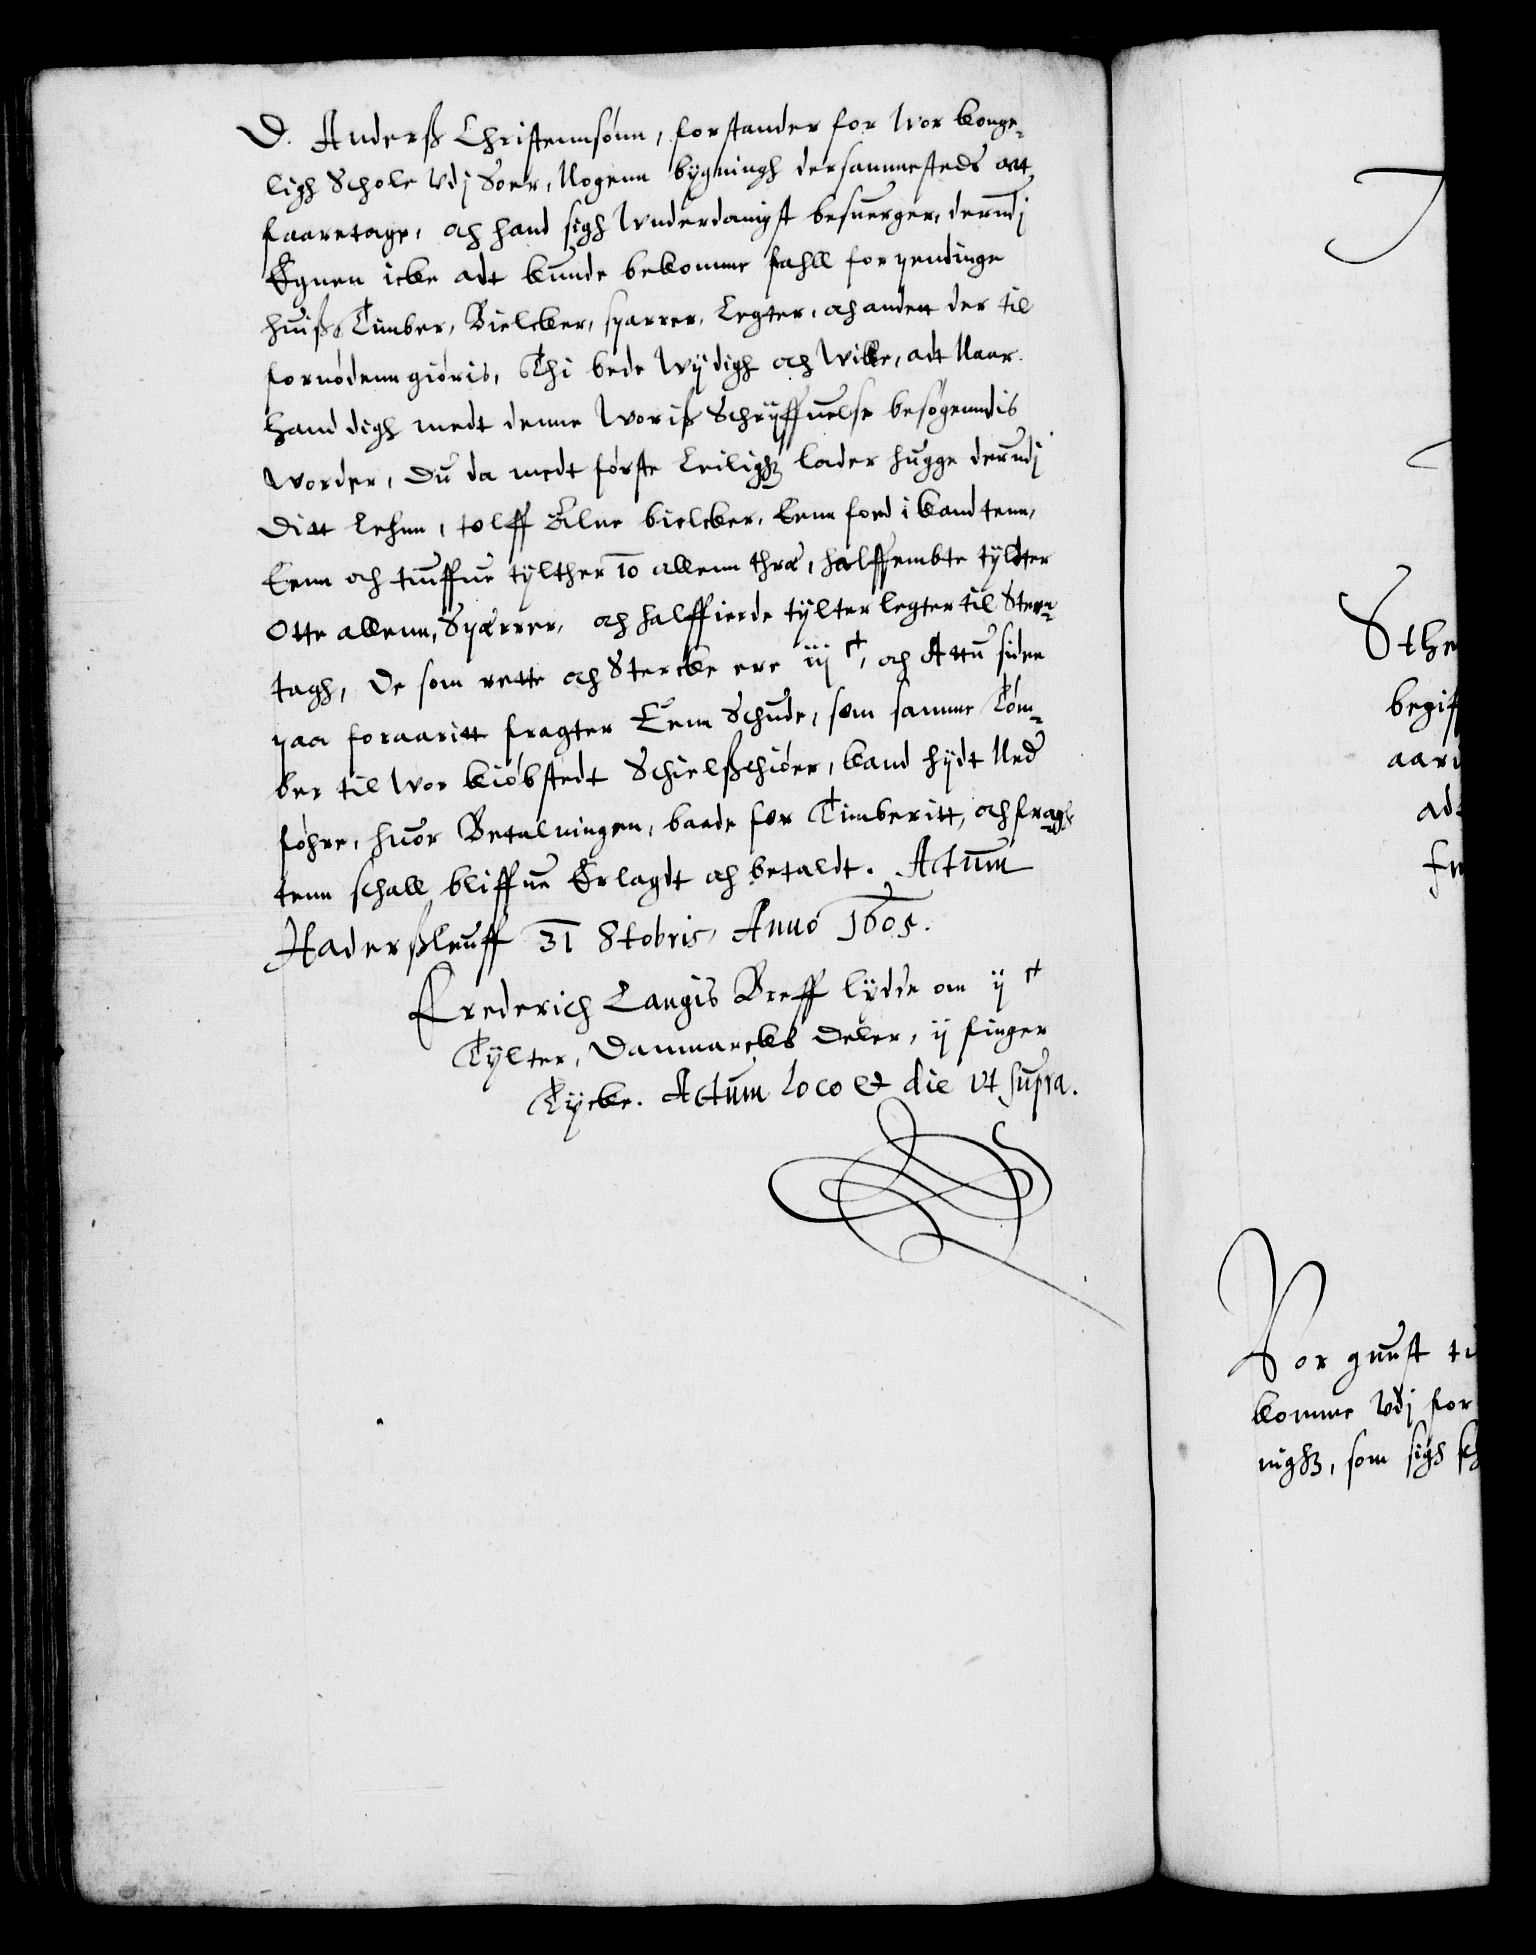 D. Anderß Christennsønn, forstander for Wor konge-
ligh Schole Vdj Soer, Nogenn bygningh dersammesteds att
faaretage, och hand sigh Wnderdanigst besuerger, derudj
Egnen icke adt kunde bekomme fahll for pendinge
huiß Timber, Bielcker, sparrer, Legter, och andett der til
fornødenn giøris, Thi bede Wij digh och Wille, adt Naar
hand digh medt denne Woriß Schrijffuelse besøgenndis
Worder, Du da medt første Leiligh lader hugge derudj
Ditt Lehnn, tolff Alne bielcker, Eenn foed i kandtenn,
Eenn och tiuffue tylther 10 allenn thræ, halffembte tyltter
Otte allenn, Spærrer, och halffierde tylter legter til Steen-
tagh, De som rette och Stercke ere iij c, och Attu siden
paa foraaritt fragter Eenn Schude, som samme Tøm-
ber til Wor kiøbstedt Schielßchiøer, kand hijdt Ned
føhre, huor Betalningen, baade for Timberitt, och fragh-
tenn schall bliffue Erlagdt och betaldt. Actum
Haderßleuff 31 8tobris, Anno 1605.
Frederich Langis Breff lydde om ij c
Tylter, Danmarcks Deler, ij finger
Tycke. Actum loco et die Vt supra.
Sthe
begif
aar
ad
fr
Vor gunst ti
komme Vdj for
nigh, som sigh